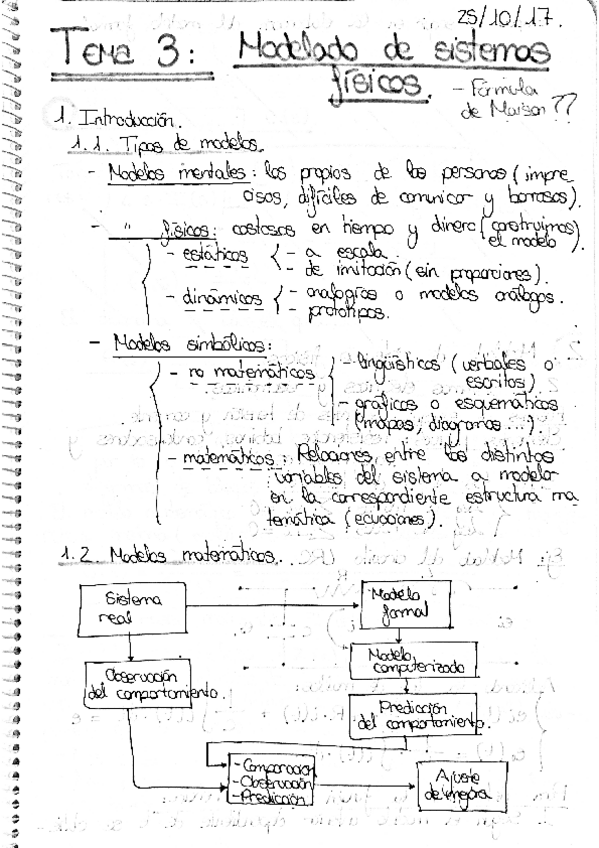 25/10/17.
Tema 3: Modelado de sistemas
físicos.
- Fórmula
de Maison ??
1. Introducción.
1.1. Tipos de modelos.
- Modelos mentales: los propios de las personas (impre
cisos, difíciles de comunicar y borrosos).
- " físicos: costosos en tiempo y dinero (construimos
el modelo).
- estáticos - a escala.
- de imitación (sin proporciones).
- dinámicos - analogías o modelos análogos.
- prototipos.
- Modelos simbólicos:
- no matemáticos - lingüísticos (verbales o
escritos).
- gráficos o esquemáticos
(mapas, diagramas ...).
- matemáticos: Relaciones entre las distintas
variables del sistema a modelar
en la correspondiente estructura ma
temática (ecuaciones).
1.2. Modelos matemáticos.
Sistema
real
Modelo
formal
Modelo
computerizado
Observación
del comportamiento.
Predicción
del comportamiento.
- Comparación
- Observación
- Predicción
Ajuste
de mejora